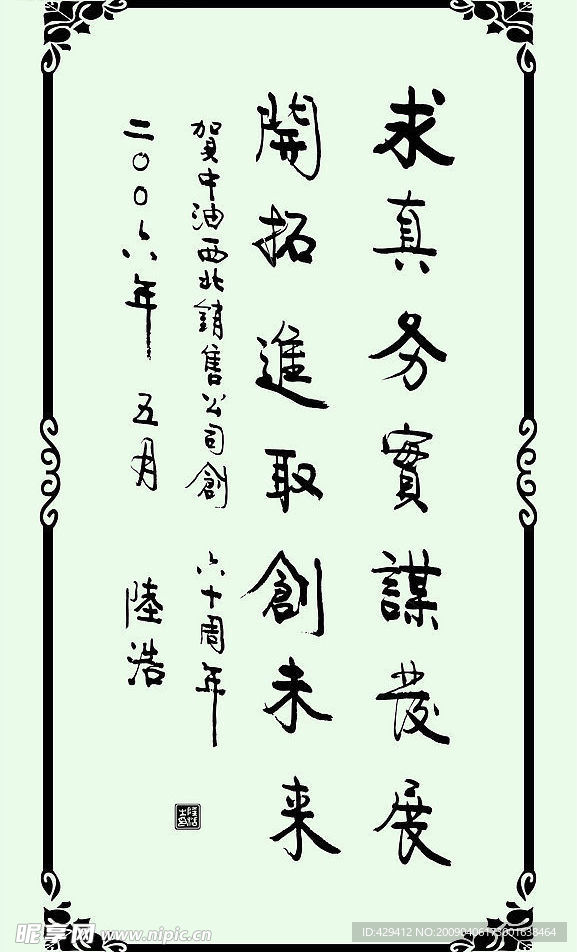 求真务實謀發展
開拓進取創未来
賀中油西北銷售公司創 六十周年
二〇〇六年 五月 陸浩
昵享网 www.nipic.cn
ID:429412 NO:20090406173601638464